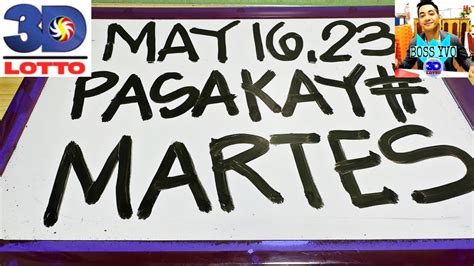 3D
LOTTO
MAY 16.23
BOSS YVO
3D
LOTTO
PASAKAY#
MARTES